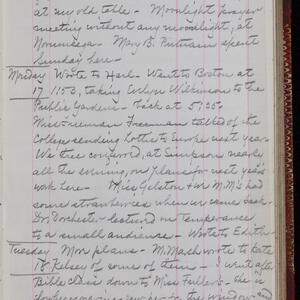 at my old table - Moonlight prayer
meeting without any moonlight, at
Norumbega - Mary B. Putnam spent
Sunday here -
Monday Wrote to Harl - Went to Boston at
17 11:53, taking Evelyn Wilkinson to the
Public Gardens - back at 5,25 -
Miss Freeman talked of the
College sending Lottie to Europe next year
We three conversed, at Simpson nearly
all the evening, on plans for next year's
work here - Miss Gelston & M.M's had
some strawberries when we came back -
Dr. Dorchester lectured on temperance
to a small audience - Wrote to Edith -
Tuesday Mor plans - M. Mash wrote to Kate
18 of some of them - I went after
Bible class down to Miss Fuller's - She is
to the window and